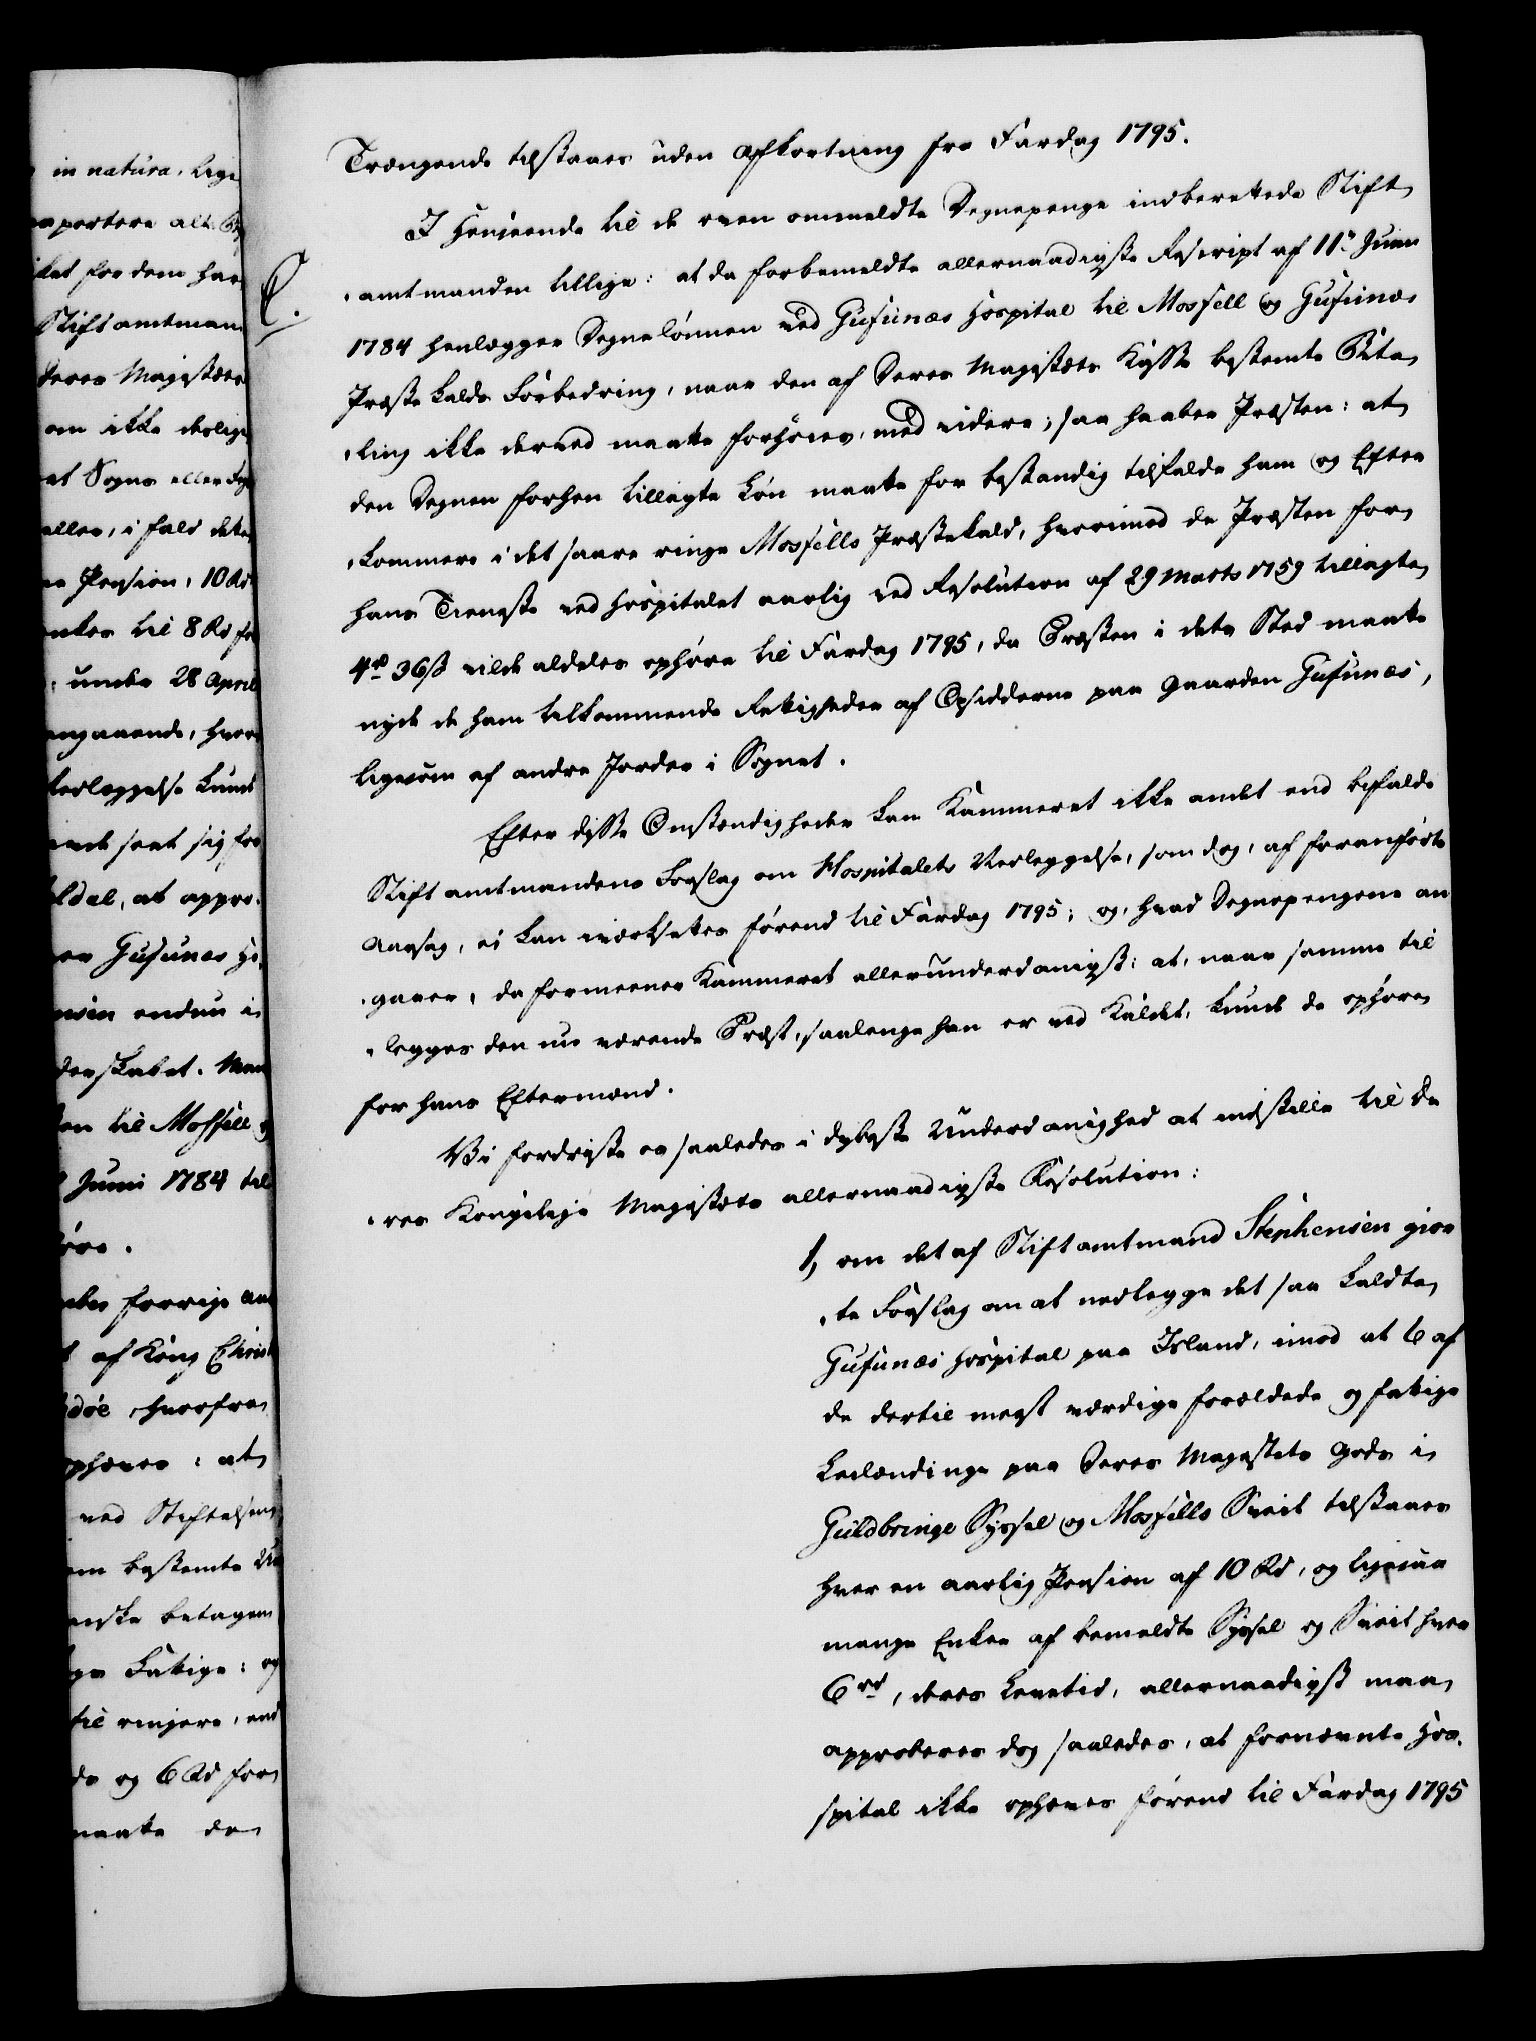 in natura, lige
aportere alt
ket for dem har
Stiftamtman
Deres Majestæts
om ikke deslige
at Sogne eller
aller, i fald dette
Pension, 10 Rd
enker til 8 Rd for
under 28 April
angaaende, hvor
Nedlæggelse kund
saat sig for
at appro-
Gufunæs Ho
endnu i
derskabet. Man
til Mosfell og
Juni 1784 til
forrige
af Kong Christ
døe, hvorfra
ophæves: at
ved Stiftelsens
bestemte
ske betagen
fattige: og
til ringere, end
og 6 Rd for
maatte den
Trængende tilstaaes uden Afkortning fra Fardag 1795.
I Henseende til de oven ommeldte Degnepenge indberettede Stift
C.
amtmanden tillige: at da forbemeldte allernaadigste Rescript af 11te Junii
1784 henlægger Degnelønnen ved Gufunæs Hospital til Mosfell og Gufunæs
Præste Kalds Forbedring, naar den af Deres Majestæts Kasse bestemte Beta-
ling ikke derved maatte forhøies, med videre; saa haaber Præsten: at
den Degnen forhen tillagte Løn maatte for bestandig tilfalde ham og Efter
kommere i det saare ringe Mosfells Præstekald, hvorimod de Præsten for
hans Tieneste ved Hospitalet aarlig ved Resolution af 29 Marts 1759 tillagte
4rd 36ß vilde aldeles ophøre til Fardag 1795, da Præsten i dets Sted maatte
nyde de ham tilkommende Rettigheder af Opsidderne paa Gaarden Gufunæs,
ligesom af andre Jorder i Sognet.
Efter disse Omstændigheder kan Kammeret ikke andet end bifalde
Stiftamtmandens Forslag om Hospitalets Nedleggelse, som dog, af foranførte
Aarsag, ei kan iværksættes førend til Fardag 1795; og, hvad Degnepengene an
gaaer, da formeener Kammeret allerunderdanigst: at, naar samme til
legges den nu værende Præst, saalenge han er ved Kaldet, kunde de ophøre
for hans Eftermænd.
Vi fordriste os saaledes i dybeste Underdanighed at indstille til De
res Kongelige Majestæts allernaadigste Resolution:
1, om det af Stiftamtmand Stephensen gior
te Forslag om at nedlegge det saa kaldte
Gufunæs Hospital paa Island, imod at 6 af
de dertil meest værdige forældede og fattige
Leilændinge paa Deres Majestets Gods i
Guldbringe Syssel og Mosfells Sveit tilstaaes
hver en aarlig Pension af 10 Rd, og ligesaa
mange Enker af bemeldte Syssel og Sveit hver
6rd, deres Levetid, allernaadigst maa
approberes dog saaledes, at fornævnte Hos-
spital ikke ophæves førend til Fardag 1795